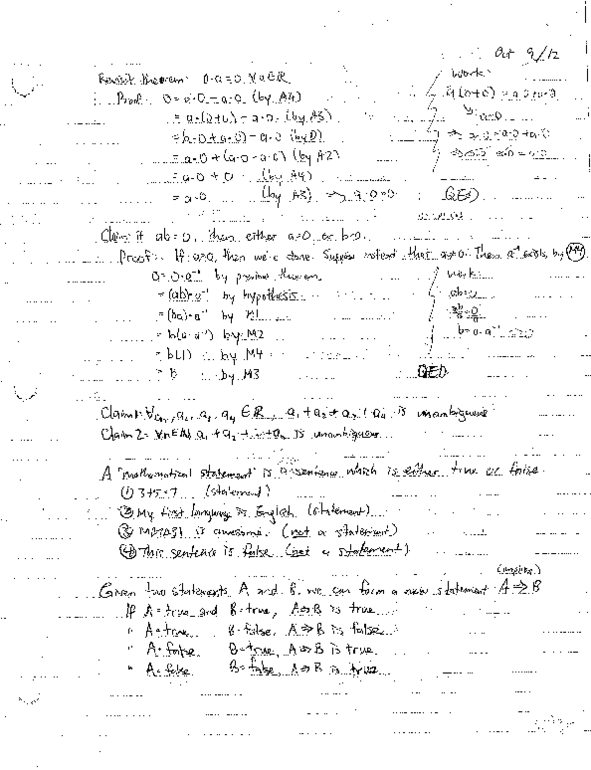 Oct 9/12
Revisit theorem: 0·a=0 ∀a∈R
Proof: 0 = a·0 - a·0 (by A4)
= a·(0+0) - a·0 (by A3)
= (a·0 + a·0) - a·0 (by D)
= a·0 + (a·0 - a·0) (by A2)
= a·0 + 0 (by A4)
= a·0 (by A3) ⇒ a·0=0 QED
work:
a(0+0) = a·0+a·0
Claim: if ab=0, then either a=0 or b=0.
Proof: If a=0, then we're done. Suppose instead that a≠0. Then a⁻¹ exists by M4
0 = 0·a⁻¹ by previous theorem
= (ab)·a⁻¹ by hypothesis
= (ba)·a⁻¹ by M1
= b(a·a⁻¹) by M2
= b(1) by M4
= b by M3 QED
work:
ab=0
b=0·a⁻¹
Claim 1: a₁+a₂+a₃+a₄ is unambiguous
Claim 2: ∀n∈N a₁+a₂+...+aₙ is unambiguous
A "mathematical statement" is a sentence which is either true or false.
(1) 3+5=7 (statement)
(2) My first language is English (statement)
(3) MATA31 is awesome. (not a statement)
(4) This sentence is false (not a statement)
(implies)
Given two statements A and B, we can form a new statement A⇒B
If A=true and B=true, A⇒B is true
" A=true B=false, A⇒B is false
" A=false B=true, A⇒B is true.
" A=false B=false, A⇒B is true